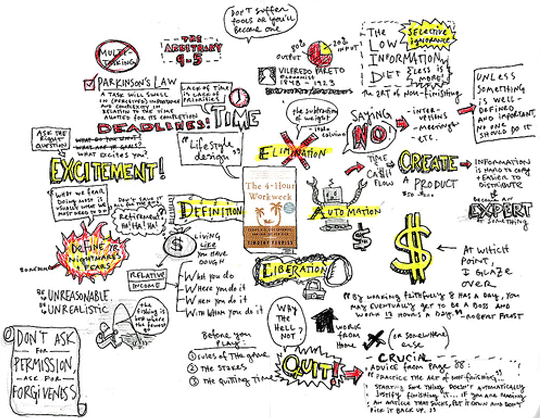 DON'T SUFFER
FOOLS OR YOU'LL
BECOME ONE
MULTI-
TASKING
THE
ARBITRARY
9-5
80%
OUTPUT
20%
INPUT
VILFREDO PARETO
ECONOMIST
1848 - 1923
THE
LOW
INFORMATION
DIET
SELECTIVE
IGNORANCE
LESS IS
MORE!
THE ART OF NON-FINISHING
PARKINSON'S LAW
A TASK WILL SWELL
IN (PERCEIVED) IMPORTANCE
AND COMPLEXITY IN
RELATION TO THE TIME
ALLOTTED FOR ITS COMPLETION
DEADLINES!
LACK OF TIME
IS LACK OF
PRIORITIES
TIME
THE SUBTRACTION
OF WEIGHT
SAYING
NO
INTER-
VIEWS
MEETINGS
ETC.
UNLESS
SOMETHING
IS WELL-
DEFINED
AND
IMPORTANT,
NO ONE
SHOULD DO IT
ASK THE
RIGHT
QUESTION
WHAT DO YOU WANT?
WHAT ARE UR GOALS?
WHAT EXCITES YOU?
EXCITEMENT!
"LIFESTYLE
DESIGN"
ELIMINATION
The 4-Hour
Workweek
TIMOTHY FERRISS
TIME
CASH
FLOW
CREATE
A PRODUCT
INFORMATION
IS HARD TO COPY
+ EASIER TO
DISTRIBUTE
BECOME AN
EXPERT
AT SOMETHING
"WHAT WE FEAR
DOING MOST IS
USUALLY WHAT WE
MOST NEED TO DO"
RETIREMENT?
HA! HA! HA!
DEFINITION
AUTOMATION
DEFINE UR
NIGHTMARES
FEARS
LIVING
LIKE
YOU HAVE
DOUGH
LIBERATION
AT WHICH
POINT,
I GLAZE
OVER
BE UNREASONABLE.
BE UNREALISTIC
RELATIVE
INCOME
WHAT YOU DO
WHERE YOU DO IT
WHEN YOU DO IT
WITH WHOM YOU DO IT
THE
FISHING IS
BEST WHERE
THE FEWEST
GO
"BY WORKING FAITHFULLY 8 HRS A DAY, YOU
MAY EVENTUALLY GET TO BE A BOSS AND
WORK 12 HOURS A DAY." - ROBERT FROST
WHY
THE
HELL
NOT?
WORK
FROM
HOME
(OR SOMEWHERE
ELSE
DON'T ASK
FOR
PERMISSION,
ASK FOR
FORGIVENESS
BEFORE YOU
PLAY:
① RULES OF THE GAME
② THE STAKES
③ THE QUITTING TIME
QUIT!
CRUCIAL
ADVICE FROM PAGE 88:
"PRACTICE THE ART OF NON-FINISHING...
STARTING SOMETHING DOESN'T AUTOMATICALLY
JUSTIFY FINISHING IT... IF YOU ARE READING
AN ARTICLE THAT SUCKS, PUT IT DOWN AND DON'T
PICK IT BACK UP.